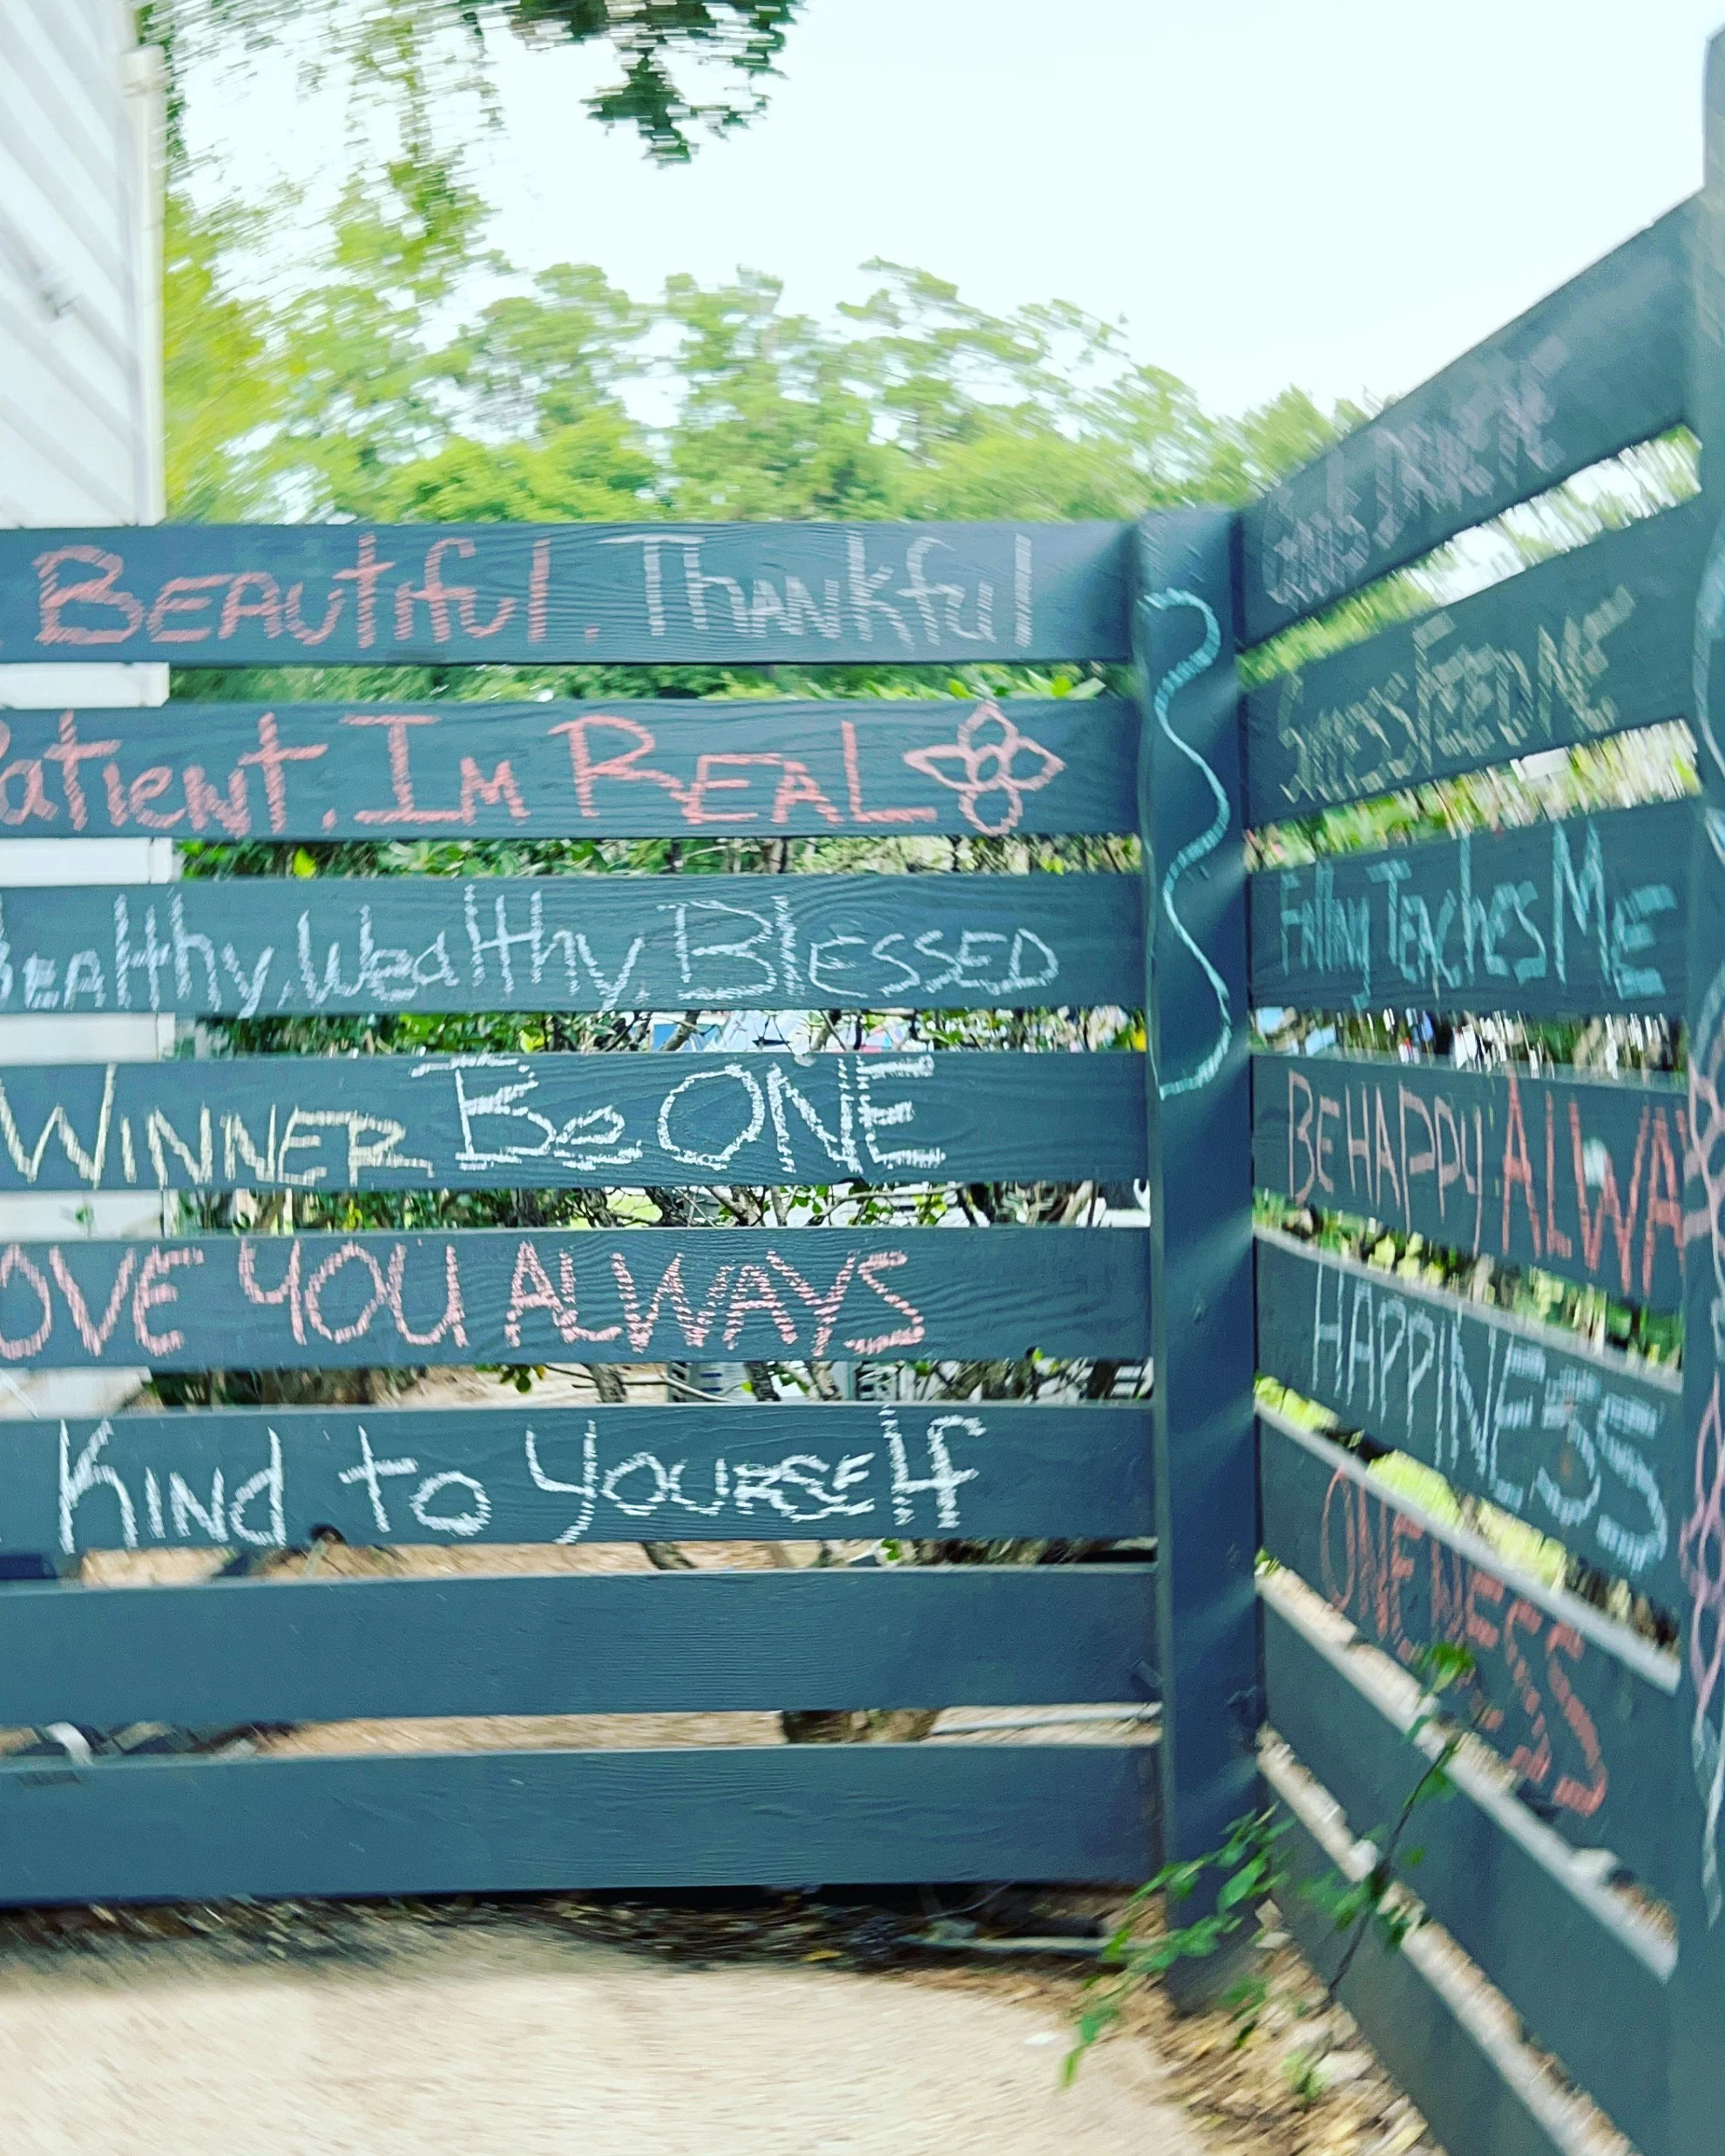 Beautiful. Thankful
Patient. Im Real
healthy, Wealthy, Blessed
Winner Be ONE
OVE YOU ALWAYS
Kind to Yourself
Success FEED ME
Failing Teaches Me
BE HAPPY ALWA
HAPPINESS
ONENESS